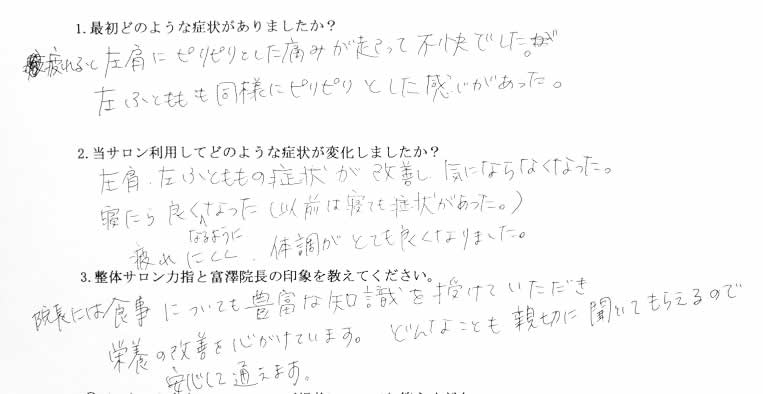 1.最初どのような症状がありましたか？
疲れると左肩にピリピリとした痛みが走って不快でした。
左ふとももも同様にピリピリとした感じがあった。
2.当サロン利用してどのような症状が変化しましたか？
左肩、左ふとももの症状が改善し気にならなくなった。
寝たら良くなるようになった（以前は寝ても症状があった。）
疲れにくく、体調がとても良くなりました。
3.整体サロン力指と富澤院長の印象を教えてください。
院長には食事についても豊富な知識を授けていただき
栄養の改善を心がけています。どんなことも親切に聞いてもらえるので
安心して通えます。